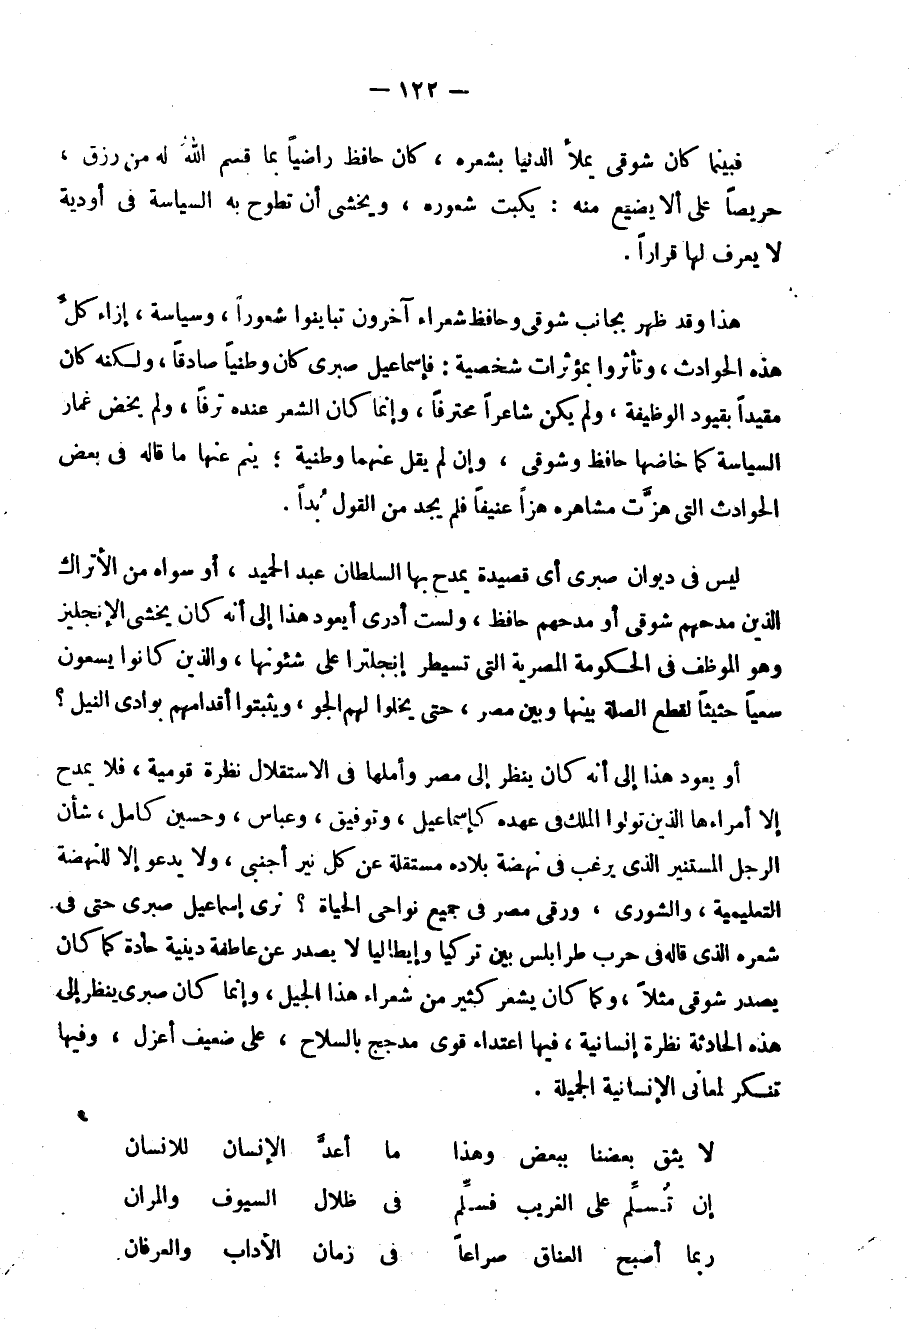 — ١٢٢ —
فبينما كان شوقى يملأ الدنيا بشعره ، كان حافظ راضياً بما قسم اللهُ له من رزق ،
حريصاً على ألا يضيَع منه : يكبت شعوره ، ويخشى أن تطوح به السياسة فى أودية
لا يعرف لها قراراً .
هذا وقد ظهر بجانب شوقى وحافظ شعراء آخرون تباينوا شعوراً ، وسياسة ، إزاء كلِّ
هذه الحوادث ، وتأثروا بمؤثرات شخصية : فإسماعيل صبرى كان وطنياً صادقاً ، ولكنه كان
مقيداً بقيود الوظيفة ، ولم يكن شاعراً محترفاً ، وإنما كان الشعر عنده ترفاً ، ولم يخض غمار
السياسة كما خاضها حافظ وشوقى ، وإن لم يقل عنهما وطنية ؛ ينم عنها ما قاله فى بعض
الحوادث التى هزَّت مشاهره هزاً عنيفاً فلم يجد من القول بُداً .
ليس فى ديوان صبرى أى قصيدة يمدح بها السلطان عبد الحميد ، أو سواه من الأتراك
الذين مدحهم شوقى أو مدحهم حافظ ، ولست أدرى أيعود هذا إلى أنه كان يخشى الإنجليز
وهو الموظف فى الحكومة المصرية التى تسيطر إنجلترا على شئونها ، والذين كانوا يسعون
سعياً حثيثاً لقطع الصلة بينها وبين مصر ، حتى يخلوا لهم الجو ، ويثبتوا أقدامهم بوادى النيل ؟
أو يعود هذا إلى أنه كان ينظر إلى مصر وأملها فى الاستقلال نظرة قومية ، فلا يمدح
إلا أمراءها الذين تولوا الملك فى عهده كإسماعيل ، وتوفيق ، وعباس ، وحسين كامل ، شأن
الرجل المستنير الذى يرغب فى نهضة بلاده مستقلة عن كل نير أجنبى ، ولا يدعو إلا للنهضة
التعليمية ، والشورى ، ورقى مصر فى جميع نواحى الحياة ؟ نرى إسماعيل صبرى حتى فى
شعره الذى قاله فى حرب طرابلس بين تركيا وإيطاليا لا يصدر عن عاطفة دينية حادة كما كان
يصدر شوقى مثلاً ، وكما كان يشعر كثير من شعراء هذا الجيل ، وإنما كان صبرى ينظر إلى
هذه الحادثة نظرة إنسانية ، فيها اعتداء قوى مدجج بالسلاح ، على ضعيف أعزل ، وفيها
تفكر لمعانى الإنسانية الجميلة .
لا يثق بعضنا ببعض وهذا ما أعدَّ الإنسان للانسان
إن تُسلِّم على الغريب فسلِّم فى ظلال السيوف والمران
ربما أصبح العناق صراعاً فى زمان الآداب والعرفان